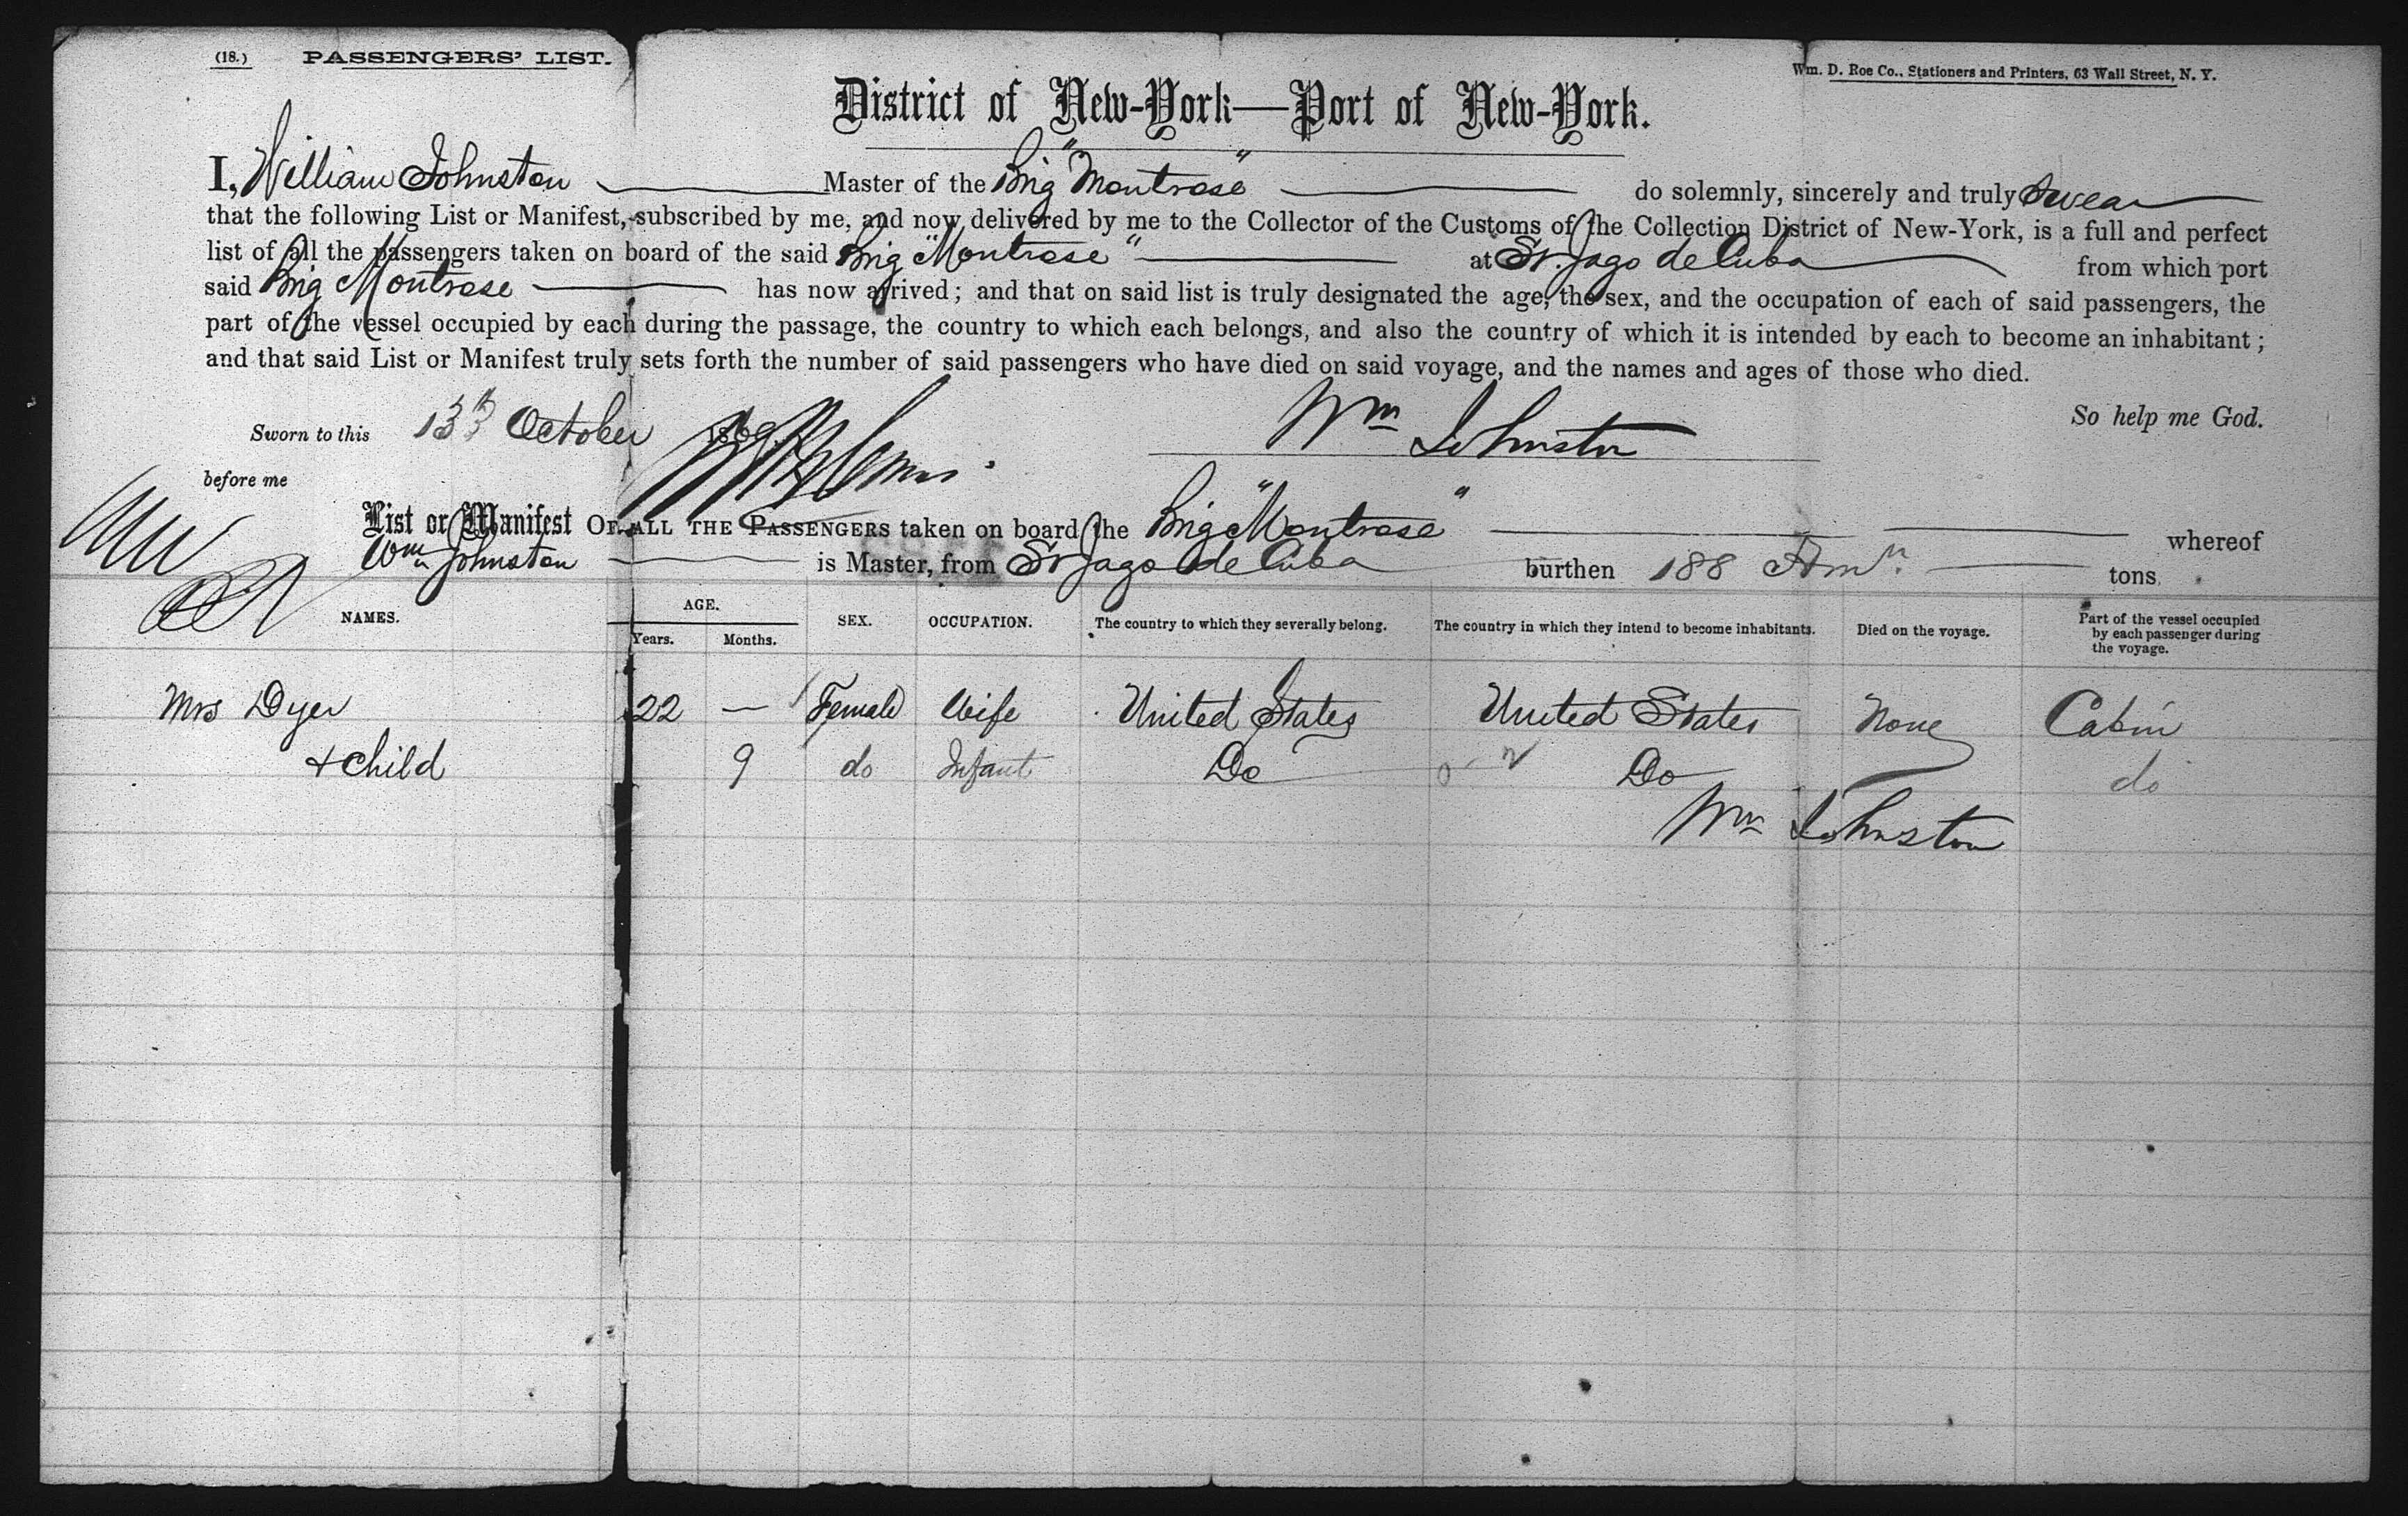 (18.) PASSENGERS' LIST.
Wm. D. Roe Co., Stationers and Printers, 63 Wall Street, N. Y.
District of New-York—Port of New-York.
I, William Johnston Master of the Brig "Montrose" do solemnly, sincerely and truly swear
that the following List or Manifest, subscribed by me, and now delivered by me to the Collector of the Customs of the Collection District of New-York, is a full and perfect
list of all the passengers taken on board of the said Brig "Montrose" at St. Jago de Cuba from which port
said Brig Montrose has now arrived; and that on said list is truly designated the age, the sex, and the occupation of each of said passengers, the
part of the vessel occupied by each during the passage, the country to which each belongs, and also the country of which it is intended by each to become an inhabitant;
and that said List or Manifest truly sets forth the number of said passengers who have died on said voyage, and the names and ages of those who died.
So help me God.
Sworn to this 13th October 1869 Wm Johnston
before me
List or Manifest OF ALL THE PASSENGERS taken on board the Brig "Montrose" whereof
Wm Johnston is Master, from St Jago de Cuba burthen 188 Amn. tons.
NAMES. AGE. Years. Months. SEX. OCCUPATION. The country to which they severally belong. The country in which they intend to become inhabitants. Died on the voyage. Part of the vessel occupied by each passenger during the voyage.
Mrs Dyer 22 — Female Wife United States United States None Cabin
+ Child 9 do Infant Do Do do
Wm Johnston